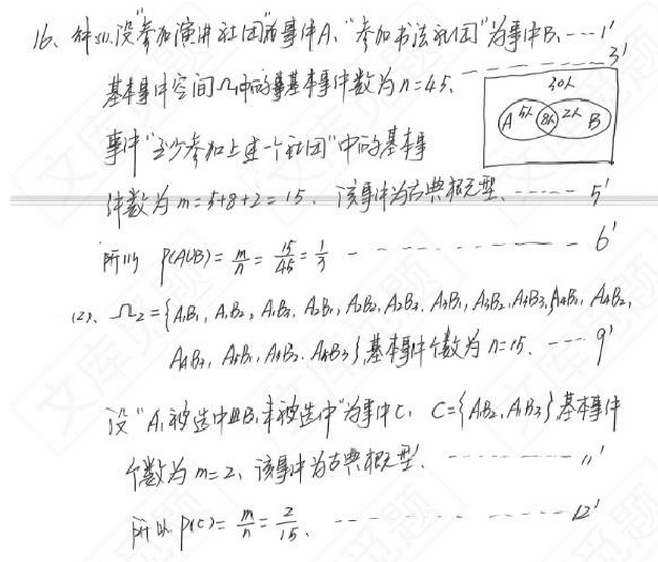 16、解(1).设"参加演讲社团"为事件A、"参加书法社团"为事件B、---1'
基本事件空间Ω中的基本事件数为n=45、------3'
30人
A 5人 8人 2人 B
事件"至少参加上述一个社团"中的基本事
件数为m=5+8+2=15、该事件为古典概型、------5'
所以 P(A∪B)=m/n=15/45=1/3 ------------6'
(2)、Ω₂={A₁B₁, A₁B₂, A₁B₃, A₂B₁, A₂B₂, A₂B₃, A₃B₁, A₃B₂, A₃B₃, A₄B₁, A₄B₂,
A₄B₃, A₅B₁, A₅B₂, A₅B₃}基本事件个数为n=15、----9'
设"A₁被选中且B₁未被选中"为事件C, C={A₁B₂, A₁B₃}基本事件
个数为m=2、该事件为古典概型、---------11'
所以 P(C)=m/n=2/15、------------12'